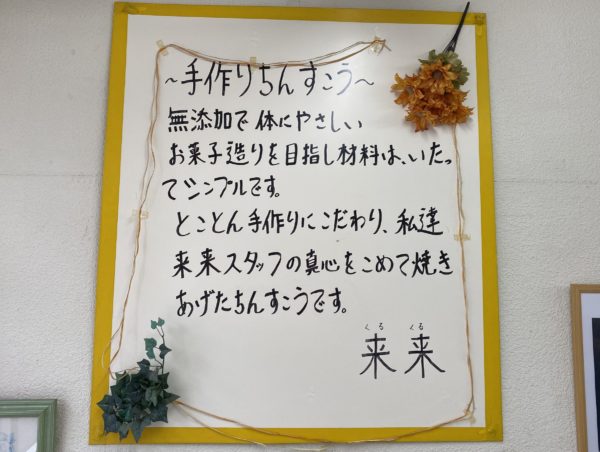 ~手作りちんすこう~
無添加で体にやさしい
お菓子造りを目指し材料は、いたっ
てシンプルです。
とことん手作りにこだわり、私達
来来スタッフの真心をこめて焼き
あげたちんすこうです。
くる くる
来来